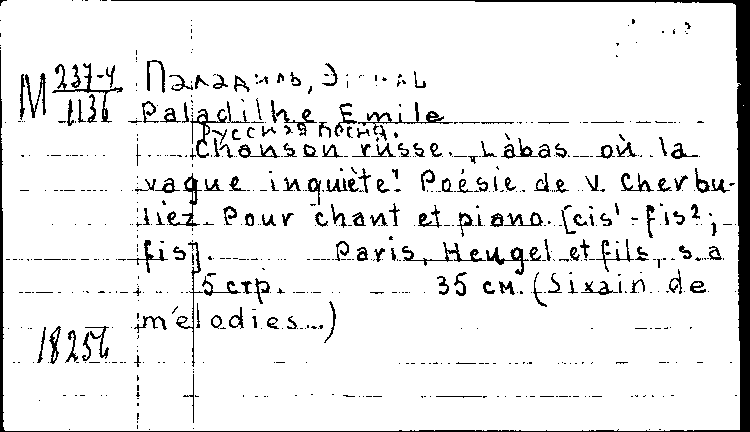 M 237-4/1136
Паладиль, Эмиль
Paladilhe, Emile
Русская песня.
Chanson russe. "Làbas où la
vague inquiète". Poésie de V. Cherbu-
liez. Pour chant et piano. [cis¹-fis²;
fis]. Paris, Heugel et fils, s.a
5 стр. 35 см. (Sixain de
mélodies...)
18256